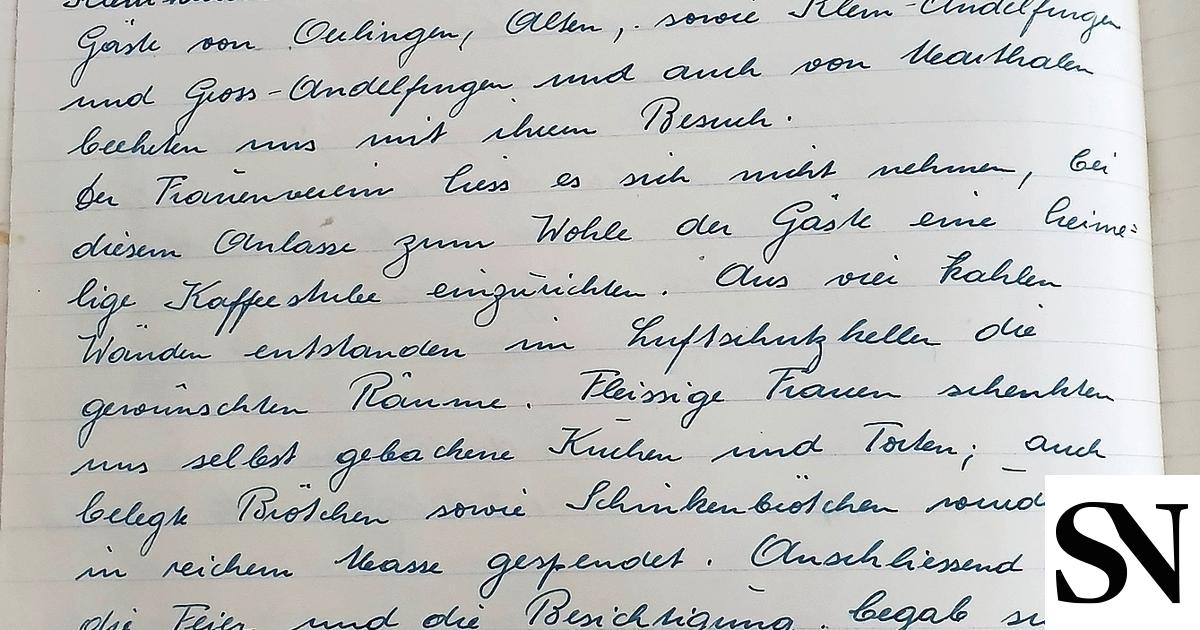 Gäste von Oerlingen, Alten, sowie Klein-Andelfingen
und Gross-Andelfingen und auch von Marthalen
beehrten uns mit ihrem Besuch.
Der Frauenverein liess es sich nicht nehmen, bei
diesem Anlasse zum Wohle der Gäste eine heime=
lige Kaffeestube einzurichten. Aus vier kahlen
Wänden entstanden im Luftschutzkeller die
gewünschten Räume. Fleissige Frauen schenkten
uns selbst gebackene Kuchen und Torten; auch
belegte Brötchen sowie Schinkenbrötchen
in reichem Masse gespendet. Anschliessend
die Feier und die Besichtigung begab
SN